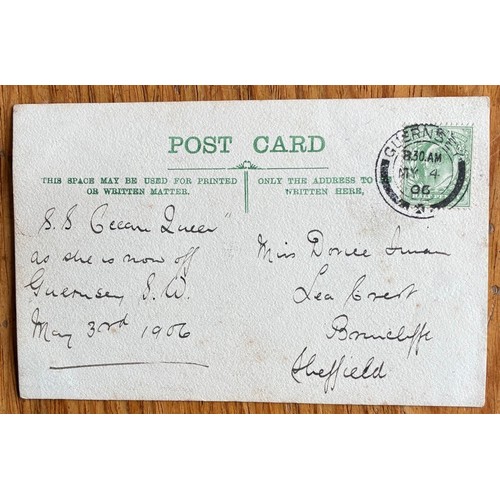 POST CARD
THIS SPACE MAY BE USED FOR PRINTED
OR WRITTEN MATTER.
ONLY THE ADDRESS TO
WRITTEN HERE,
GUERNSEY
8.30 AM
MY 4
06
S.S "Ocean Queen"
as she is now off
Guernsey S.W.
May 3rd 1906
Miss
Lea Crest
Brincliffe
Sheffield